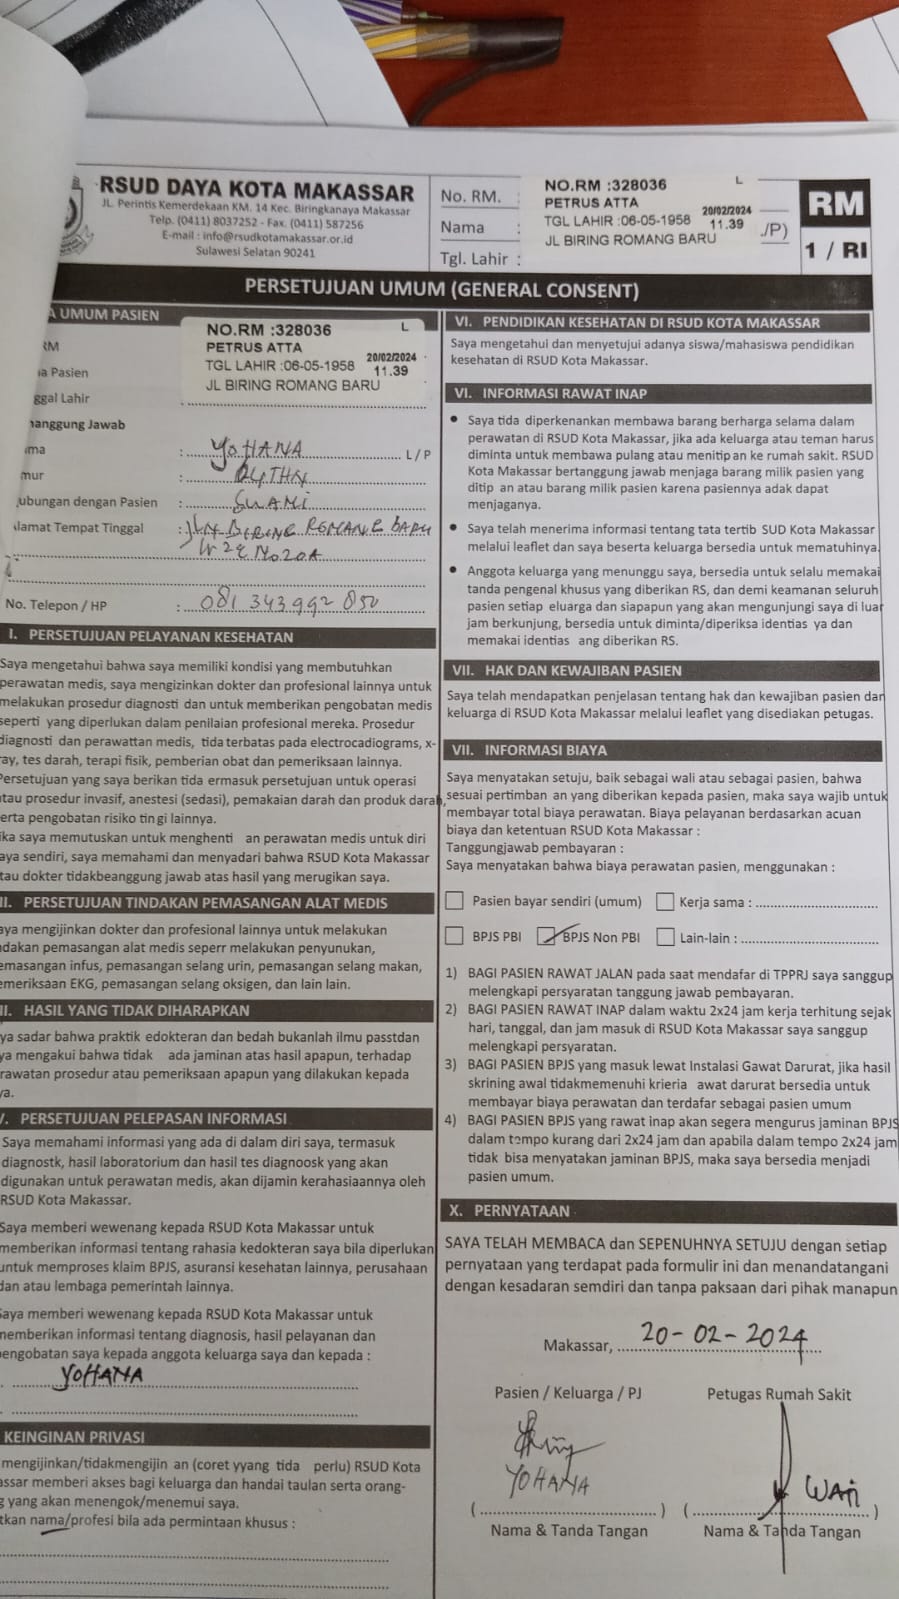 RSUD DAYA KOTA MAKASSAR
JL. Perintis Kemerdekaan KM. 14 Kec. Biringkanaya Makassar
Telp. (0411) 8037252 - Fax. (0411) 587256
E-mail : info@rsudkotamakassar.or.id
Sulawesi Selatan 90241
No. RM. :
Nama :
Tgl. Lahir :
NO.RM :328036 L
PETRUS ATTA
TGL LAHIR :06-05-1958 20/02/2024 11.39
JL BIRING ROMANG BARU
/P)
RM
1 / RI
PERSETUJUAN UMUM (GENERAL CONSENT)
A UMUM PASIEN
RM
a Pasien
ggal Lahir
NO.RM :328036 L
PETRUS ATTA
TGL LAHIR :06-05-1958 20/02/2024 11.39
JL BIRING ROMANG BARU
anggung Jawab
ma : YOHANA L / P
mur : THN
ubungan dengan Pasien : SUAMI
lamat Tempat Tinggal : JLN BIRING ROMANG BARU
No 20A
No. Telepon / HP : 081 343992 850
I. PERSETUJUAN PELAYANAN KESEHATAN
Saya mengetahui bahwa saya memiliki kondisi yang membutuhkan
perawatan medis, saya mengizinkan dokter dan profesional lainnya untuk
melakukan prosedur diagnosti dan untuk memberikan pengobatan medis
seperti yang diperlukan dalam penilaian profesional mereka. Prosedur
diagnosti dan perawattan medis, tida terbatas pada electrocadiograms, x-
ray, tes darah, terapi fisik, pemberian obat dan pemeriksaan lainnya.
Persetujuan yang saya berikan tida ermasuk persetujuan untuk operasi
atau prosedur invasif, anestesi (sedasi), pemakaian darah dan produk darah,
erta pengobatan risiko tin gi lainnya.
ika saya memutuskan untuk menghenti an perawatan medis untuk diri
aya sendiri, saya memahami dan menyadari bahwa RSUD Kota Makassar
tau dokter tidakbeanggung jawab atas hasil yang merugikan saya.
II. PERSETUJUAN TINDAKAN PEMASANGAN ALAT MEDIS
aya mengijinkan dokter dan profesional lainnya untuk melakukan
ndakan pemasangan alat medis seperr melakukan penyunukan,
emasangan infus, pemasangan selang urin, pemasangan selang makan,
emeriksaan EKG, pemasangan selang oksigen, dan lain lain.
II. HASIL YANG TIDAK DIHARAPKAN
ya sadar bahwa praktik edokteran dan bedah bukanlah ilmu passtdan
ya mengakui bahwa tidak ada jaminan atas hasil apapun, terhadap
rawatan prosedur atau pemeriksaan apapun yang dilakukan kepada
ya.
V. PERSETUJUAN PELEPASAN INFORMASI
Saya memahami informasi yang ada di dalam diri saya, termasuk
diagnostk, hasil laboratorium dan hasil tes diagnoosk yang akan
digunakan untuk perawatan medis, akan dijamin kerahasiaannya oleh
RSUD Kota Makassar.
Saya memberi wewenang kepada RSUD Kota Makassar untuk
memberikan informasi tentang rahasia kedokteran saya bila diperlukan
untuk memproses klaim BPJS, asuransi kesehatan lainnya, perusahaan
dan atau lembaga pemerintah lainnya.
Saya memberi wewenang kepada RSUD Kota Makassar untuk
memberikan informasi tentang diagnosis, hasil pelayanan dan
pengobatan saya kepada anggota keluarga saya dan kepada :
YOHANA
KEINGINAN PRIVASI
mengijinkan/tidakmengijin an (coret yyang tida perlu) RSUD Kota
assar memberi akses bagi keluarga dan handai taulan serta orang-
g yang akan menengok/menemui saya.
tkan nama/profesi bila ada permintaan khusus :
VI. PENDIDIKAN KESEHATAN DI RSUD KOTA MAKASSAR
Saya mengetahui dan menyetujui adanya siswa/mahasiswa pendidikan
kesehatan di RSUD Kota Makassar.
VI. INFORMASI RAWAT INAP
• Saya tida diperkenankan membawa barang berharga selama dalam
perawatan di RSUD Kota Makassar, jika ada keluarga atau teman harus
diminta untuk membawa pulang atau menitip an ke rumah sakit. RSUD
Kota Makassar bertanggung jawab menjaga barang milik pasien yang
ditip an atau barang milik pasien karena pasiennya adak dapat
menjaganya.
• Saya telah menerima informasi tentang tata tertib SUD Kota Makassar
melalui leaflet dan saya beserta keluarga bersedia untuk mematuhinya.
• Anggota keluarga yang menunggu saya, bersedia untuk selalu memakai
tanda pengenal khusus yang diberikan RS, dan demi keamanan seluruh
pasien setiap eluarga dan siapapun yang akan mengunjungi saya di luar
jam berkunjung, bersedia untuk diminta/diperiksa identias ya dan
memakai identias ang diberikan RS.
VII. HAK DAN KEWAJIBAN PASIEN
Saya telah mendapatkan penjelasan tentang hak dan kewajiban pasien dan
keluarga di RSUD Kota Makassar melalui leaflet yang disediakan petugas.
VII. INFORMASI BIAYA
Saya menyatakan setuju, baik sebagai wali atau sebagai pasien, bahwa
sesuai pertimban an yang diberikan kepada pasien, maka saya wajib untuk
membayar total biaya perawatan. Biaya pelayanan berdasarkan acuan
biaya dan ketentuan RSUD Kota Makassar :
Tanggungjawab pembayaran :
Saya menyatakan bahwa biaya perawatan pasien, menggunakan :
Pasien bayar sendiri (umum) Kerja sama :
BPJS PBI BPJS Non PBI Lain-lain :
1) BAGI PASIEN RAWAT JALAN pada saat mendafar di TPPRJ saya sanggup
melengkapi persyaratan tanggung jawab pembayaran.
2) BAGI PASIEN RAWAT INAP dalam waktu 2x24 jam kerja terhitung sejak
hari, tanggal, dan jam masuk di RSUD Kota Makassar saya sanggup
melengkapi persyaratan.
3) BAGI PASIEN BPJS yang masuk lewat Instalasi Gawat Darurat, jika hasil
skrining awal tidakmemenuhi krieria awat darurat bersedia untuk
membayar biaya perawatan dan terdafar sebagai pasien umum
4) BAGI PASIEN BPJS yang rawat inap akan segera mengurus jaminan BPJS
dalam tempo kurang dari 2x24 jam dan apabila dalam tempo 2x24 jam
tidak bisa menyatakan jaminan BPJS, maka saya bersedia menjadi
pasien umum.
X. PERNYATAAN
SAYA TELAH MEMBACA dan SEPENUHNYA SETUJU dengan setiap
pernyataan yang terdapat pada formulir ini dan menandatangani
dengan kesadaran semdiri dan tanpa paksaan dari pihak manapun
Makassar, 20-02-2024
Pasien / Keluarga / PJ Petugas Rumah Sakit
YOHANA WAN
Nama & Tanda Tangan Nama & Tanda Tangan